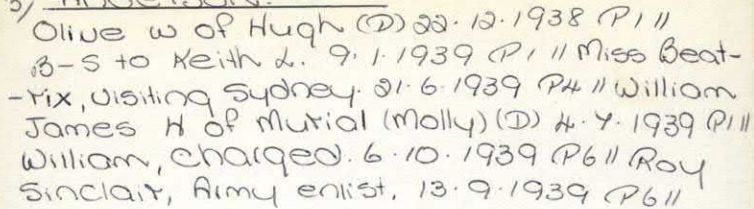 5/
Olive w of Hugh (D) 22.12.1938 P1 //
B-S to Keith L. 9.1.1939 P1 // Miss Beat-
-rix, visiting Sydney. 21.6.1939 P4 // William
James H of Murial (Molly) (D) 4.7.1939 P1 //
William, charged. 6.10.1939 P6 // Roy
Sinclair, Army enlist, 13.9.1939 P6 //